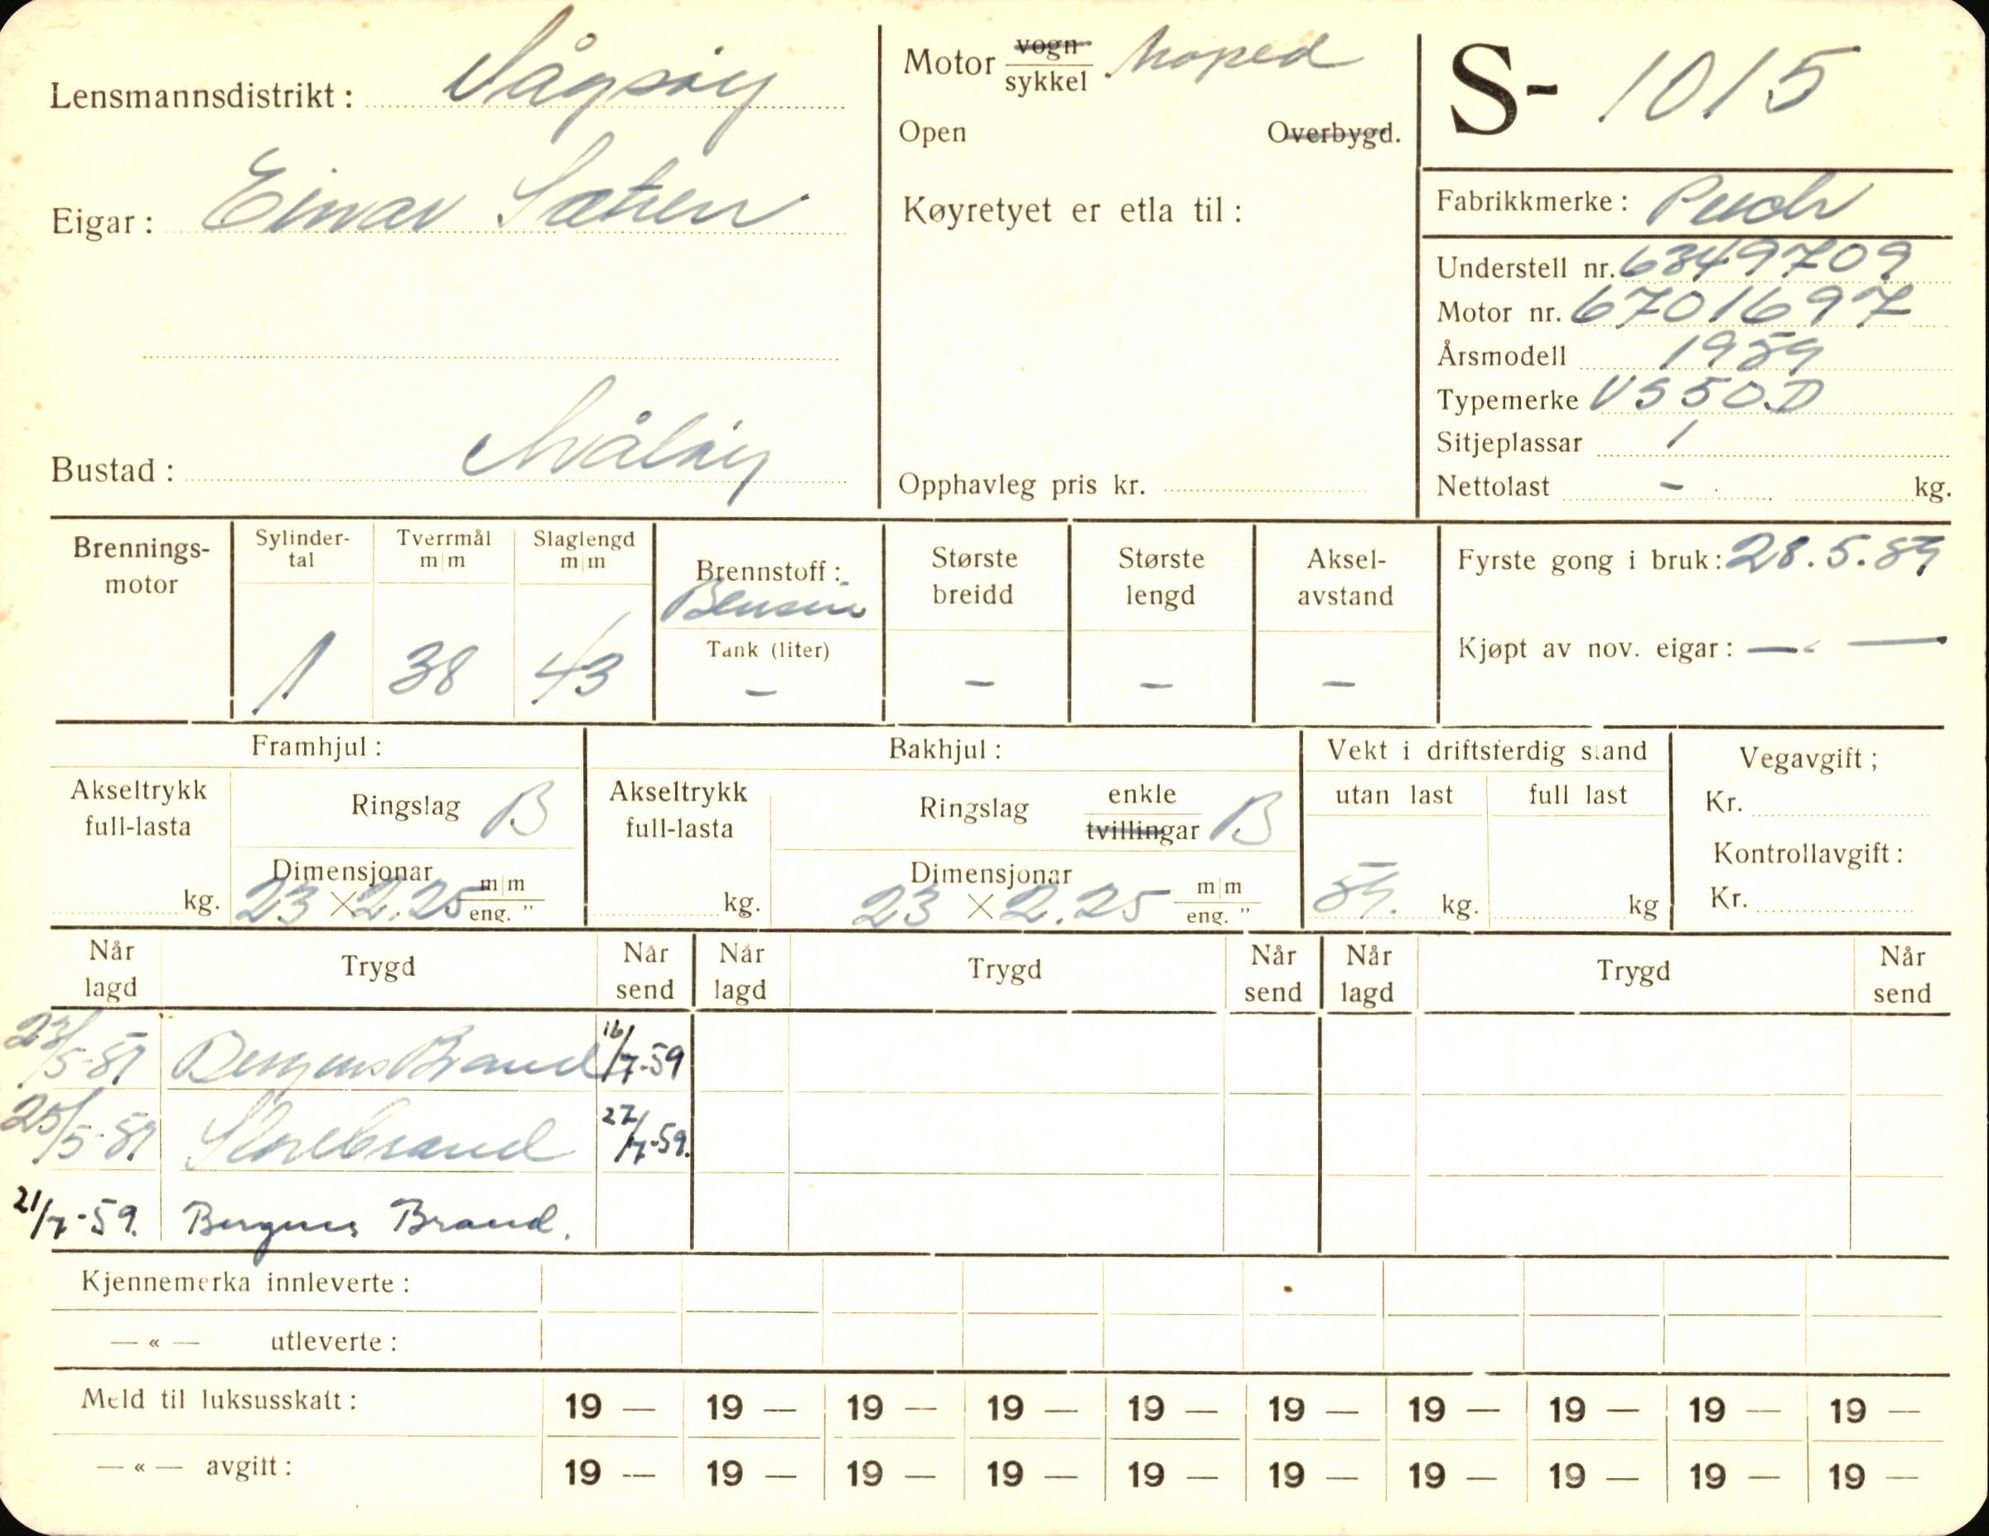 Lensmannsdistrikt: Vågsøy
Eigar: Einar Sætren
Bustad: Måløy
Motor vogn
sykkel Moped
Open Overbygd.
Køyretyet er etla til:
Opphavleg pris kr.
S- 1015
Fabrikkmerke: Puch
Understell nr. 6349709
Motor nr. 6701697
Årsmodell 1959
Typemerke VS 50 D
Sitjeplassar 1
Nettolast - kg.
Brennings-
motor
Sylinder-
tal
1
Tverrmål
m/m
38
Slaglengd
m/m
43
Brennstoff:
Bensin
Tank (liter)
-
Største
breidd
-
Største
lengd
-
Aksel-
avstand
-
Fyrste gong i bruk: 28.5.59
Kjøpt av nov. eigar: — " —
Framhjul:
Akseltrykk
full-lasta
kg.
Ringslag B
Dimensjonar
23 × 2.25 m/m
eng. "
Bakhjul:
Akseltrykk
full-lasta
kg.
Ringslag enkle
tvillingar B
Dimensjonar
23 × 2.25 m/m
eng. "
Vekt i driftsferdig stand
utan last full last
59. kg. kg
Vegavgift;
Kr.
Kontrollavgift:
Kr.
Når
lagd Trygd Når
send Når
lagd Trygd Når
send Når
lagd Trygd Når
send
23/5-59 Bergens Brand 16/7-59
25/5-59 Storebrand 27/7-59.
21/7-59. Bergens Brand.
Kjennemerka innleverte:
— « — utleverte:
Meld til luksusskatt: 19 — 19 — 19 — 19 — 19 — 19 — 19 — 19 — 19 — 19 —
— « — avgift: 19 — 19 — 19 — 19 — 19 — 19 — 19 — 19 — 19 — 19 —